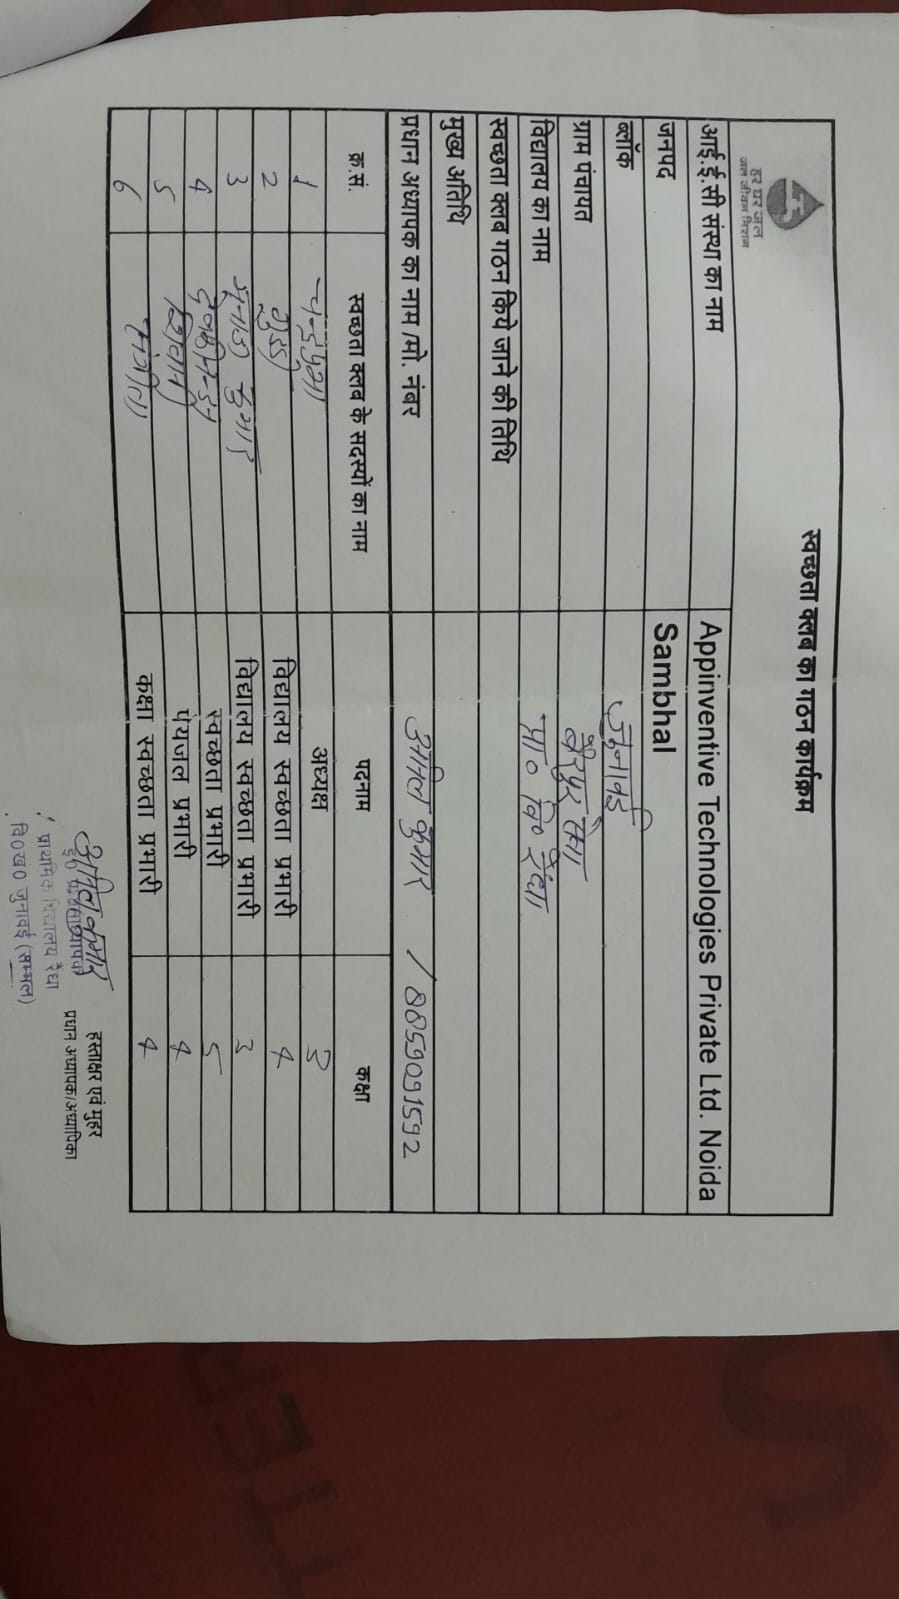 हर घर जल
जल जीवन मिशन
स्वच्छता क्लब का गठन कार्यक्रम
आई.ई.सी संस्था का नाम Appinventive Technologies Private Ltd. Noida
जनपद Sambhal
ब्लॉक जुनावई
ग्राम पंचायत
विद्यालय का नाम प्रा० वि० रैंधा
स्वच्छता क्लब गठन किये जाने की तिथि
मुख्य अतिथि
प्रधान अध्यापक का नाम /मो. नंबर अमित कुमार / 8859091592
क्र.सं. स्वच्छता क्लब के सदस्यों का नाम पदनाम कक्षा
1 अध्यक्ष 3
2 विद्यालय स्वच्छता प्रभारी 4
3 कुमार विद्यालय स्वच्छता प्रभारी 3
4 स्वच्छता प्रभारी 5
5 शिवानी पेयजल प्रभारी 4
6 संगीता कक्षा स्वच्छता प्रभारी 4
अमित कुमार
हस्ताक्षर एवं मुहर
इ० प्रधानाध्यापक
प्रधान अध्यापक/अध्यापिका
प्राथमिक विद्यालय रैंधा
वि०खं० जुनावई (सम्भल)